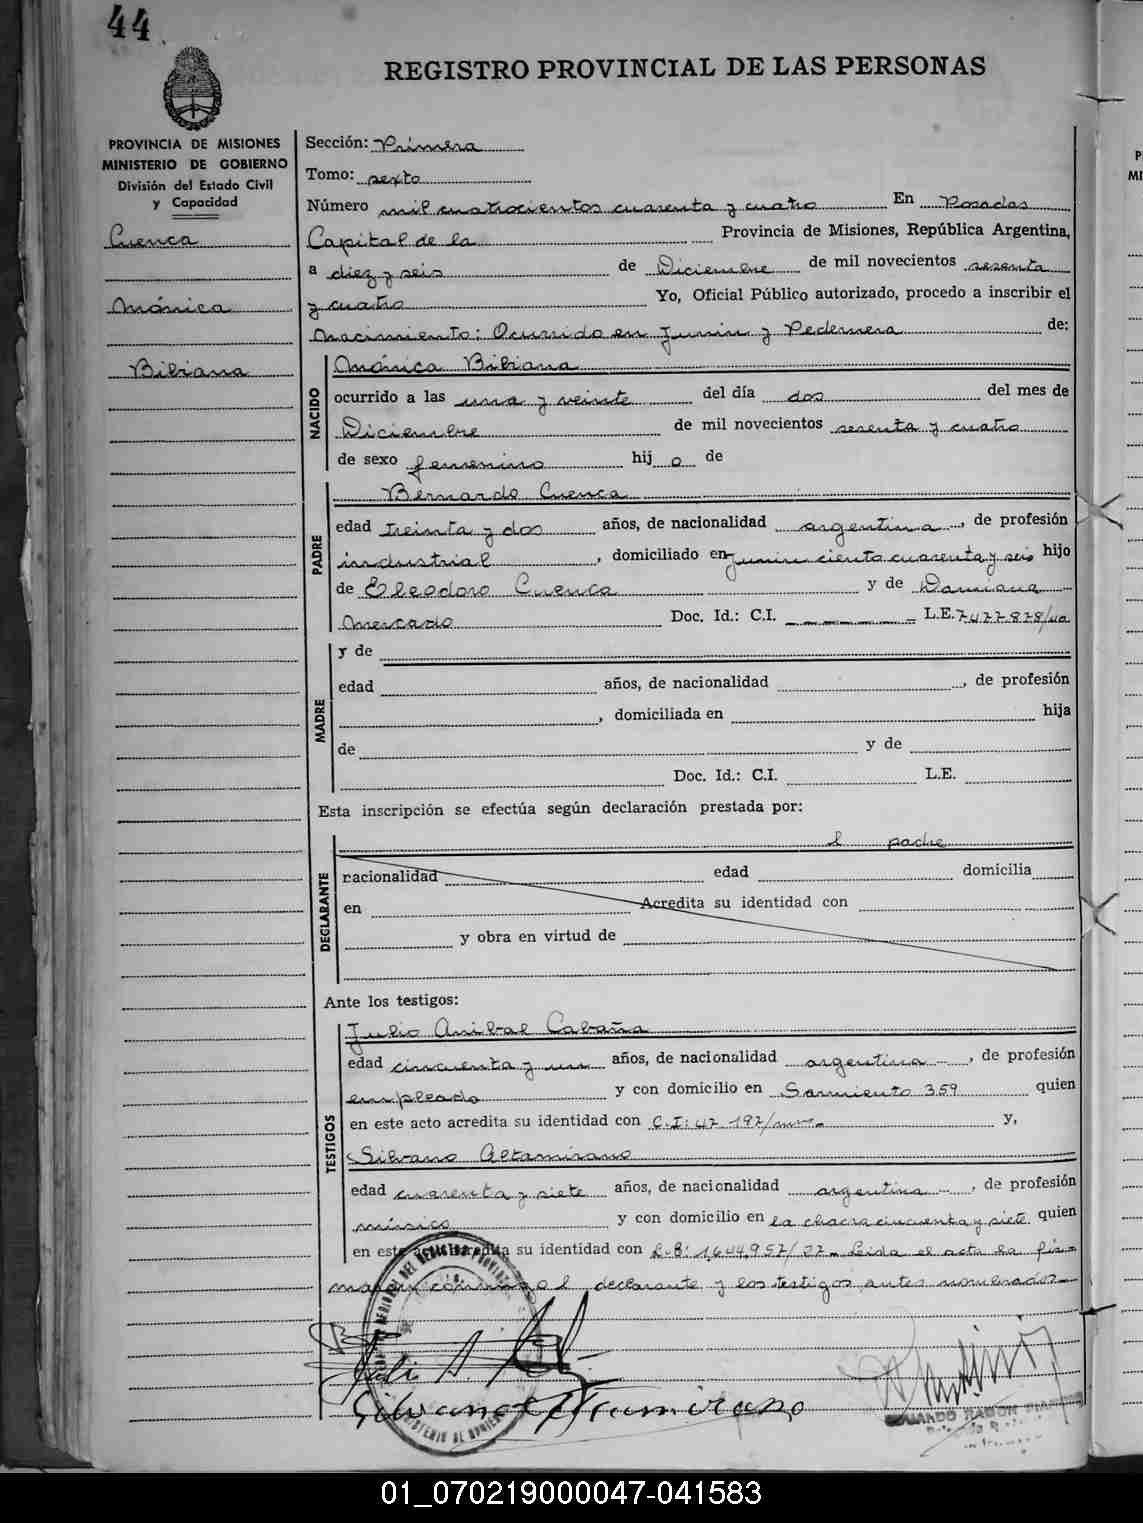 44
REGISTRO PROVINCIAL DE LAS PERSONAS
PROVINCIA DE MISIONES
MINISTERIO DE GOBIERNO
División del Estado Civil
y Capacidad
Cuenca
Mónica
Bibiana
Sección: Primera
Tomo: sexto
Número mil cuatrocientos cuarenta y cuatro En Posadas
Capital de la Provincia de Misiones, República Argentina,
a diez y seis de Diciembre de mil novecientos sesenta
y cuatro Yo, Oficial Público autorizado, procedo a inscribir el
nacimiento: Ocurrido en Junin y Pedernera de:
NACIDO
Mónica Bibiana
ocurrido a las una y veinte del día dos del mes de
Diciembre de mil novecientos sesenta y cuatro
de sexo femenino hij o de
PADRE
Bernardo Cuenca
edad treinta y dos años, de nacionalidad argentina, de profesión
industrial, domiciliado en Junin ciento cuarenta y seis hijo
de Eleodoro Cuenca y de Damiana
Mercado Doc. Id.: C.I. L.E. 7477878/
MADRE
y de
edad años, de nacionalidad , de profesión
, domiciliada en hija
de y de
Doc. Id.: C.I. L.E.
Esta inscripción se efectúa según declaración prestada por:
el padre
DECLARANTE
nacionalidad edad domicilia
en Acredita su identidad con
y obra en virtud de
Ante los testigos:
TESTIGOS
Julio Anibal Cabaña
edad cincuenta y un años, de nacionalidad argentina, de profesión
empleado y con domicilio en Sarmiento 359 quien
en este acto acredita su identidad con C.I: 47 197/ y,
Silvano Altamirano
edad cuarenta y siete años, de nacionalidad argentina, de profesión
músico y con domicilio en la chacra cincuenta y siete quien
en este acto acredita su identidad con 1.644.957/ Leida el acta la fir-
man conmigo el declarante y los testigos antes nombrados
Silvano Altamirano
01_070219000047-041583